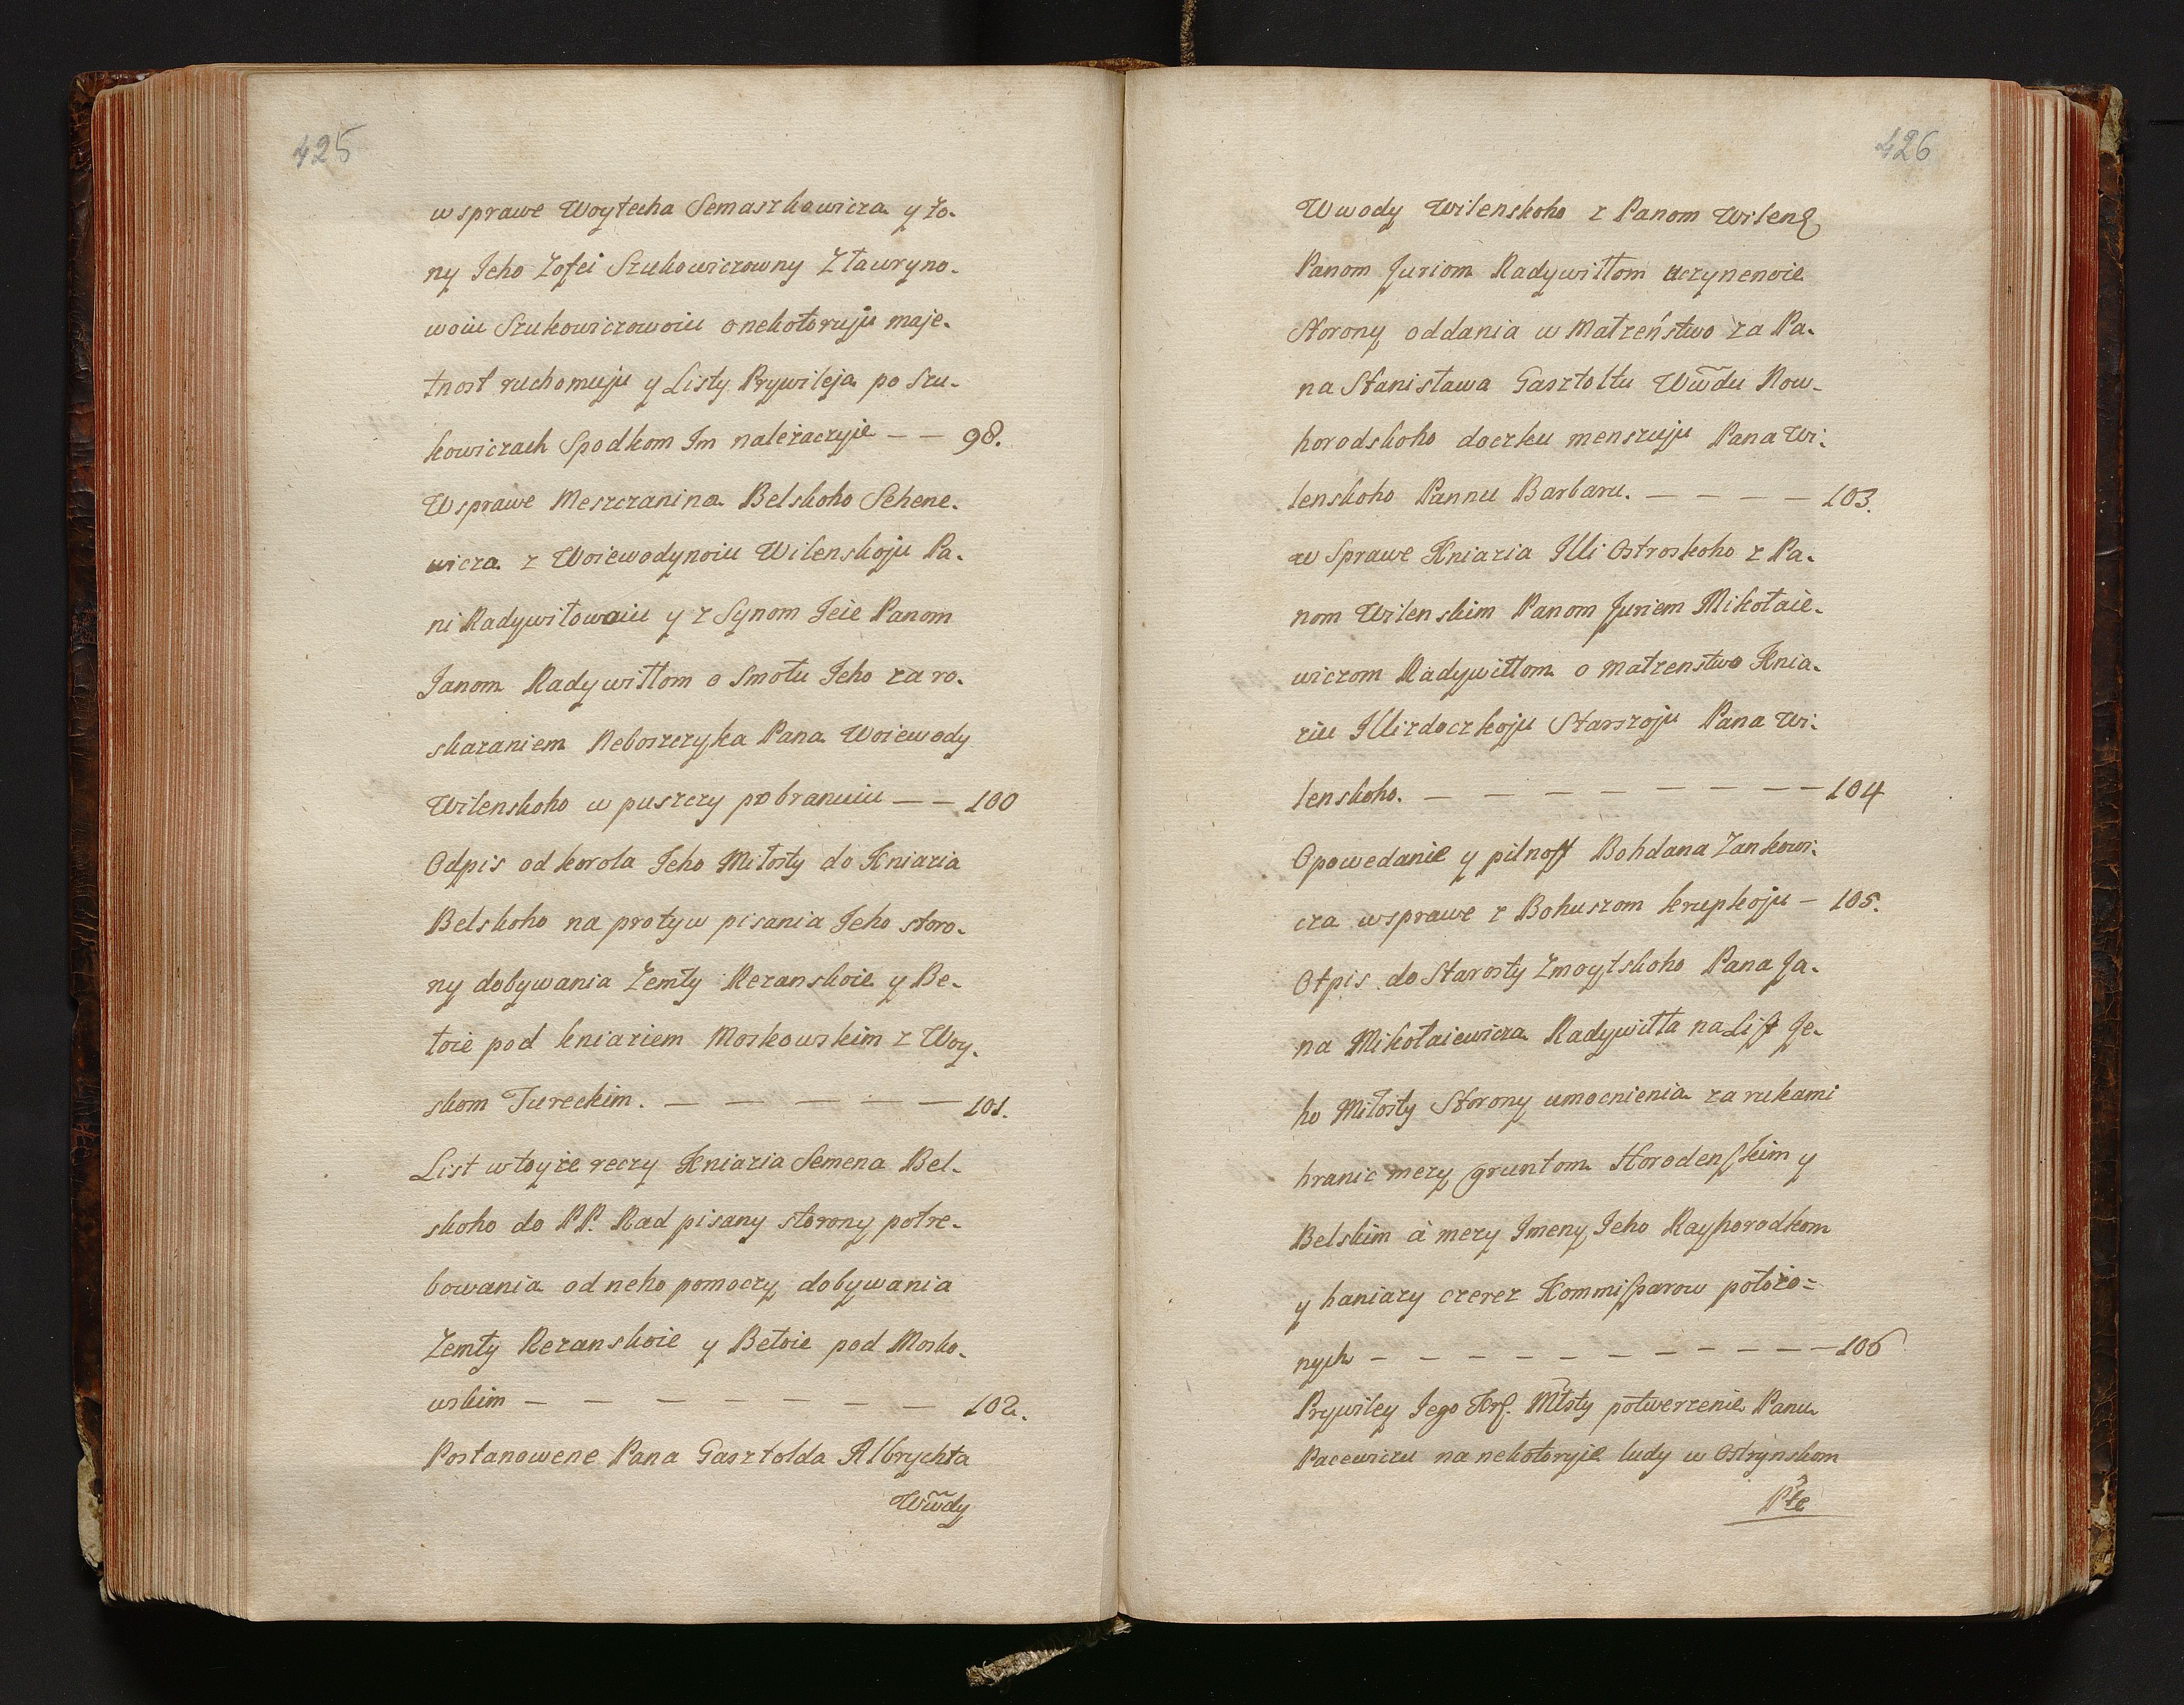 425
w sprawe Woytecha Semaszkowicza y żo-
ny Jeho Zofei Szukowiczowny Z ławryno-
woiu Szukowiczowoiu o nekotoruju maje-
tnost ruchomuju y Listy Prywileja po Szu-
kowiczach Spodkom Im należaczyie — — 98.
W sprawe Meszczanina Belskoho Sehene-
wicza z Woiewodynoiu Wilenskoju Pa-
ni Radywiłowoiu y z Synom Jeie Panom
Janom Radywiłłom o Smołu Jeho za ro-
skazaniem Neboszczyka Pana Woiewody
Wilenskoho w puszczy pobranuiu — — 100
Odpis od korola Jeho Miłosty do Kniazia
Belskoho na protyw pisania Jeho storo-
ny dobywania Zemły Rezanskoie y Be-
łoie pod kniaziem Moskowskim z Woy-
skom Tureckim. — — — — — 101.
List w toyże reczy Kniazia Semena Bel-
skoho do PP. Rad pisany storony potre-
bowania od neho pomoczy dobywania
Zemły Rezanskoie y Bełoie pod Mosko-
wskim — — — — — — — 102.
Postanowene Pana Gasztolda Albrychta
Wwdy
426
Wwody Wilenskoho z Panom Wilens
Panom Juriom Radywiłłom uczynenoie
Storony oddania w Małżeństwo za Pa-
na Stanisława Gasztołtu Wwdu Now-
horodskoho doczku menszuju Pana Wi-
lenskoho Pannu Barbaru. — — — — 103.
w Sprawe Kniazia Illi Ostroskoho z Pa-
nom Wilenskim Panom Juriem Mikołaie-
wiczom Radywiłłom o małżenstwo Knia-
ziu Illi z doczkoju Starszoju Pana Wi-
lenskoho. — — — — — — — — — 104
Opowedanie y pilnost Bohdana Zankowi-
cza w sprawe z Bohuszom krupkoju — 105.
Otpis do Starosty Zmoytskoho Pana Ja-
na Mikołaiewicza Radywiłła na List Je-
ho Miłosty Storony umocnienia za rukami
hranic mezy gruntom Horodenskim y
Belskim à mezy Imeny Jeho Rayhorodkom
y haniazy czerez Kommissarow położo-
nych — — — — — — — — — — 106
Prywiley Jego Krl. Młsty potwerzenie Panu
Pacewiczu na nekotoryie ludy w Ostrynskom
Pte